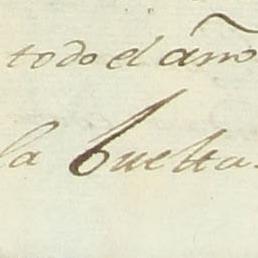 todo el año
la buelta.